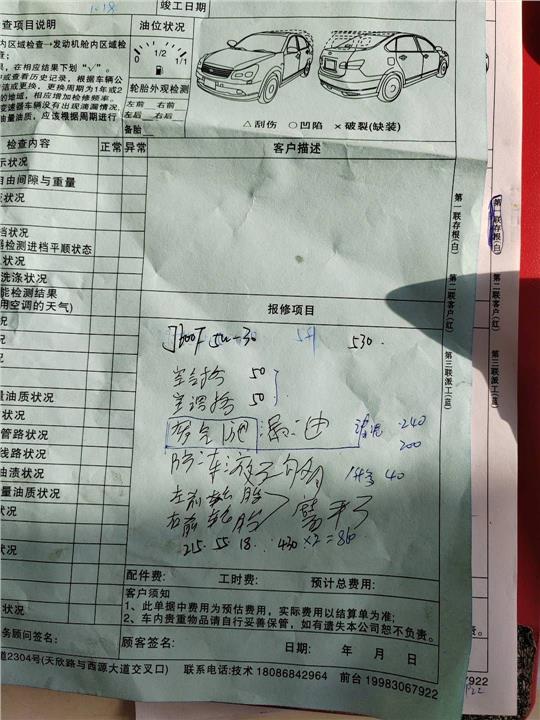 竣工日期
查项目说明
油位状况
内区域检查→发动机舱内区域检
查;
具, 在相应结果下划“√”。
中或查看历史记录, 根据车辆公
洁或更换, 更换周期为1年或2
的地域, 相应增加检修频率。
变速器车辆没有出现滴漏情况,
油量油质, 应该根据周期进行
1/2
1/1
轮胎外观检测
左前 右前
左后 右后
备胎
△刮伤 ○凹陷 ×破裂(缺装)
检查内容 正常 异常
客户描述
示状况
自由间隙与重量
状况
器检测进档平顺状态
状况
洗涤状况
能检测结果
用空调的天气)
况
量油质状况
管路状况
线路状况
油渍状况
量油质状况
第一联存根(白)
第二联客户(红)
第三联派工(蓝)
第一联存根(白)
第二联客户(红)
第三联派工(蓝)
报修项目
5W-30 530
50
空调格 50
漏油 240
200
40
左前轮胎
右前轮胎 磨平了
215 55 18 430×2=860
配件费: 工时费: 预计总费用:
客户须知
1、此单据中费用为预估费用, 实际费用以结算单为准;
2、车内贵重物品请自行妥善保管, 如有遗失本公司恕不负责。
务顾问签名: 顾客签名: 日期: 年 月 日
道2304号(天欣路与西源大道交叉口) 联系电话:技术 18086842964 前台 19983067922